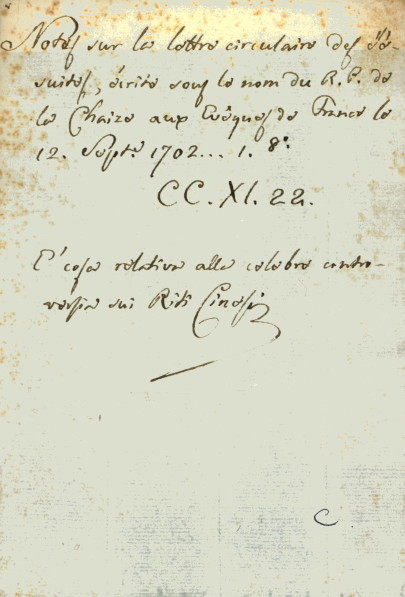 Notes sur la lettre circulaire des Jé-
suites, écrite sous le nom du R. P. de
la Chaize aux Evêques de France le
12. Septe. 1702... 1. 8°.
CC. XI. 22.
E' cosa relativa alla celebre contro-
versia sui Riti Cinesi
C